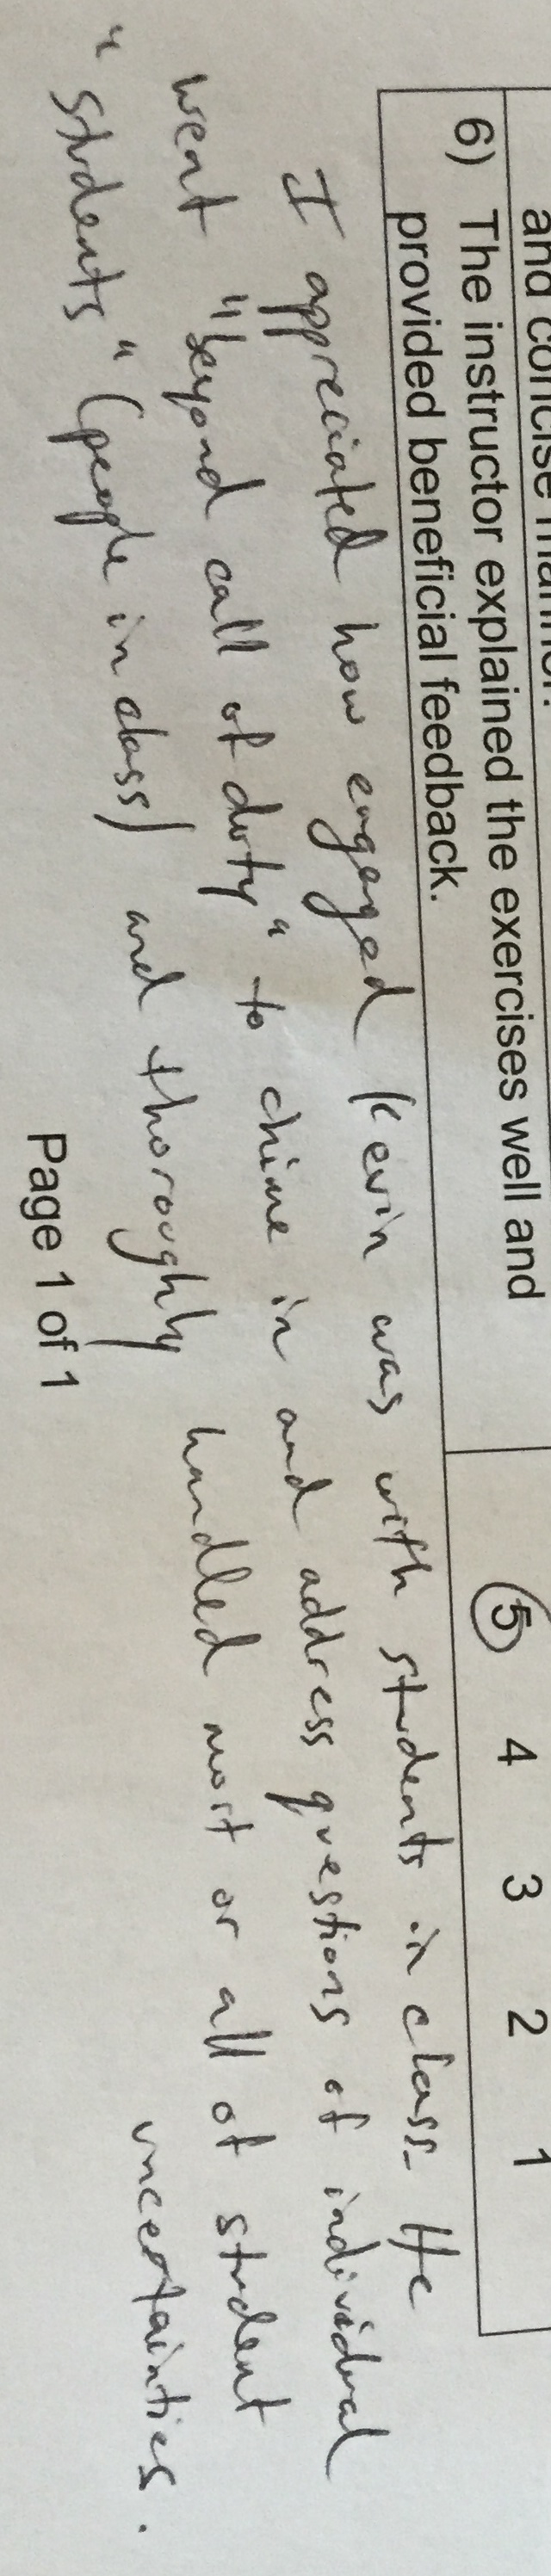 and concise manner.
6) The instructor explained the exercises well and
provided beneficial feedback.
5 4 3 2 1
I appreciated how engaged Kevin was with students in class. He
went "beyond call of duty" to chime in and address questions of individual
"students" (people in class) and thoroughly handled most or all of student
uncertainties.
Page 1 of 1